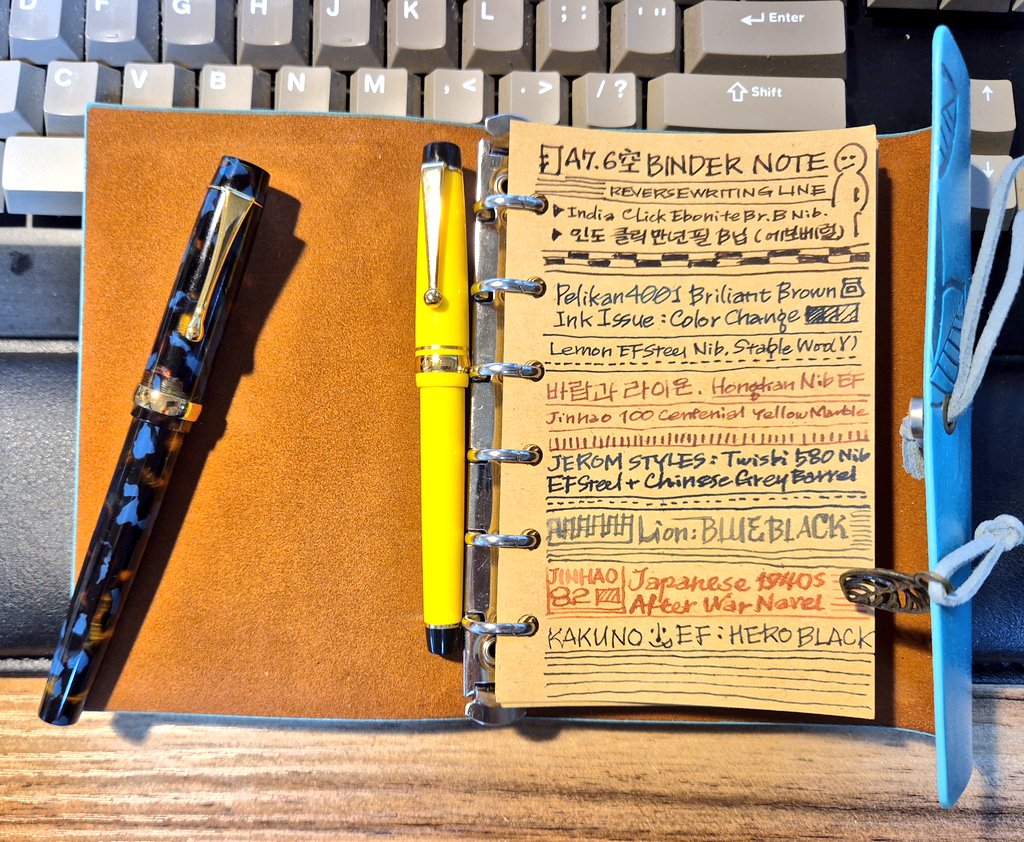 D F G H J K L ; : ' " Enter
C V B N M , < . > / ? Shift
A7.6호 BINDER NOTE
REVERSE WRITING LINE
▶ India Click Ebonite Br. B Nib.
▶ 인도 클릭 만년필 B닙 (에보베럴)
Pelikan 4001 Briliant Brown
Ink Issue : Color Change
Lemon EF Steel Nib. Stable Wod(Y)
바람과 라이온. Hongtran Nib EF
Jinhao 100 Centenial Yellow Marble
JEROM STYLES : Twisbi 580 Nib
EF Steel + Chinese Grey Barrel
Lion: BLUEBLACK
JINHAO 82
Japanese 1940s
After War Navel
KAKUNO EF : HERO BLACK